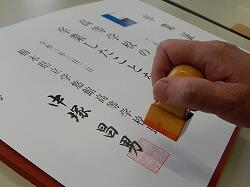 卒業
高等学校の
卒業したことを
栃木県立学悠館高等学校
中塚昌男